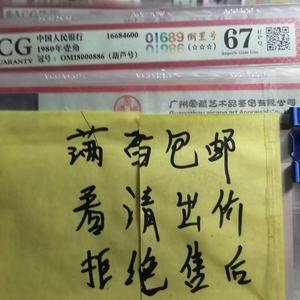 ACG
中国人民银行 16684600
1980年壹角
冠号：OMI8000886（葫芦号）
GUARANTY
01689 倒置号
01986 (☆☆☆)
67
Superb Gem Unc
广州爱藏艺术品鉴定有限公司
满百包邮
看清出价
拒绝售后